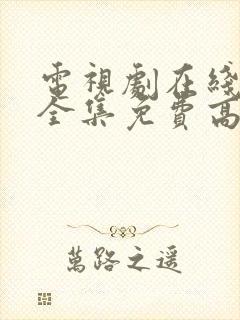 電視劇在綫
全集免費高
萬路之遥